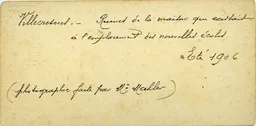 Villecresnes. - Ruines de la maison que existait
à l'emplacement des nouvelles écoles.
Eté 1906
(photographie faite par Mr Mahler)